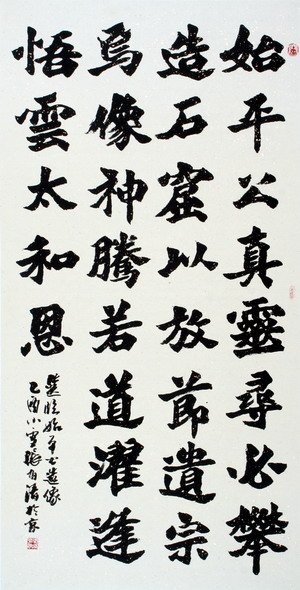 始平公真靈尋必攀
造石窟以放節遺宗
爲像神騰若道濯逢
悟雲太和恩
選臨始平公造像
乙酉小雪張有清於京